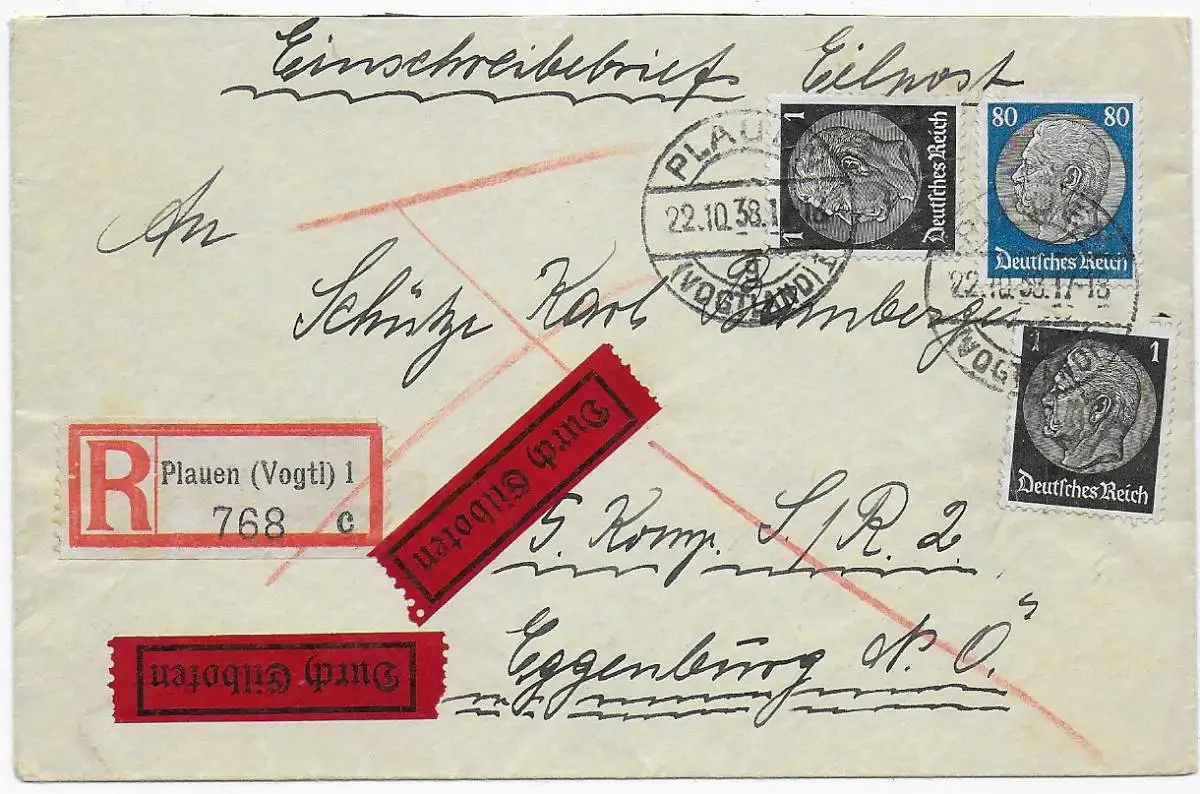 Einschreibebrief Eilpost
PLAUEN
22.10.38.17-18
g
(VOGTLAND) 1
1 1
Deutsches Reich
80 80
Deutsches Reich
22.10.38.17-18
(VOGTLAND)
1 1
Deutsches Reich
An
Schütze Karl
R Plauen (Vogtl) 1
768 c
Durch Eilboten
Komp. S./R. 2.
Eggenburg N. Ö.
Durch Eilboten